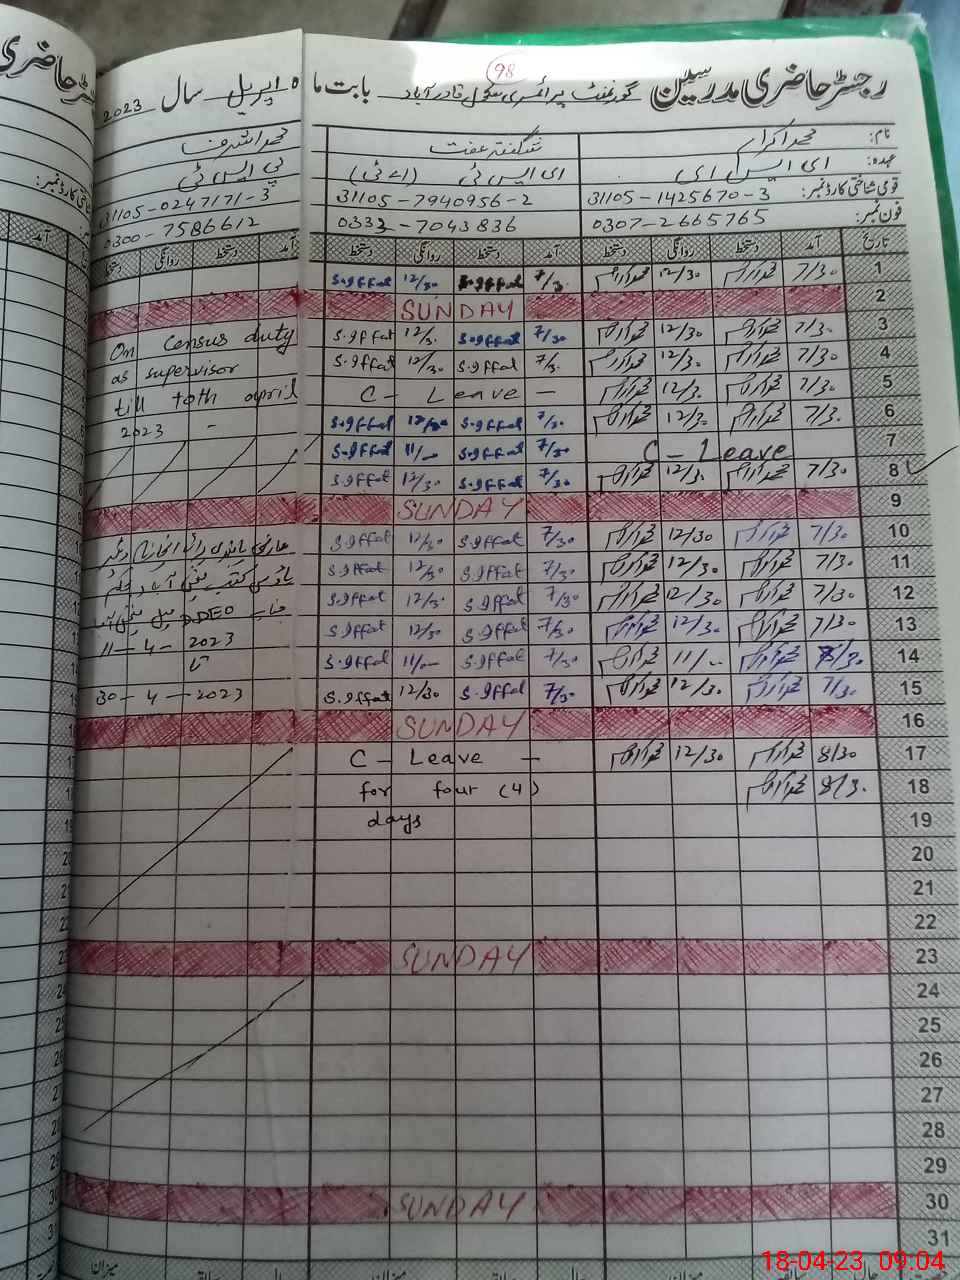 98
رجسٹر حاضری مدرسین گورنمنٹ پرائمری سکول قادر آباد بابت ماہ اپریل سال 2023
نام: محمد اکرام شگفتہ عفت محمد اشرف
عہدہ: ای ایس ای ای ایس ٹی (اے ٹی) پی ایس ٹی
قومی شناختی کارڈ نمبر: 31105-1425670-3 31105-7940956-2 31105-0247171-3
فون نمبر: 0307-2665765 0333-7043836 0300-7586612
تاریخ آمد دستخط روانگی دستخط آمد دستخط روانگی دستخط آمد دستخط روانگی دستخط
1 7/30 محمد اکرام 12/30 محمد اکرام 7/3. S.Iffat 12/30 S.Iffat
2 SUNDAY
3 7/30 محمد اکرام 12/30 محمد اکرام 7/30 S.Iffat 12/3. S.Iffat On census duty
4 7/30 محمد اکرام 12/30 محمد اکرام 7/3. S.Iffat 12/30 S.Iffat as supervisor
5 7/30 محمد اکرام 12/3. محمد اکرام C- Leave - till 10th april
6 7/3. محمد اکرام 12/3. محمد اکرام 7/30 S.Iffat 12/30 S.Iffat 2023 -
7 C- Leave 7/30 S.Iffat 11/- S.Iffat
8 7/30 محمد اکرام 12/3. محمد اکرام 7/30 S.Iffat 12/30 S.Iffat
9 SUNDAY
10 7/30 محمد اکرام 12/30 محمد اکرام 7/30 S.Iffat 12/30 S.Iffat
11 7/30 محمد اکرام 12/30 محمد اکرام 7/30 S.Iffat 12/30 S.Iffat
12 7/30 محمد اکرام 12/30 محمد اکرام 7/30 S.Iffat 12/30 S.Iffat DDEO
13 7/30 محمد اکرام 12/30 محمد اکرام 7/30 S.Iffat 12/30 S.Iffat 11-4-2023
14 7/30 محمد اکرام 11/.. محمد اکرام 7/30 S.Iffat 11/- S.Iffat تا
15 7/30 محمد اکرام 12/30 محمد اکرام 7/30 S.Iffat 12/30 S.Iffat 30-4-2023
16 SUNDAY
17 8/30 محمد اکرام 12/30 محمد اکرام C- Leave -
18 8/3. محمد اکرام for four (4)
19 days
20
21
22
23 SUNDAY
24
25
26
27
28
29
30 SUNDAY
31
میزان
18-04-23 09:04